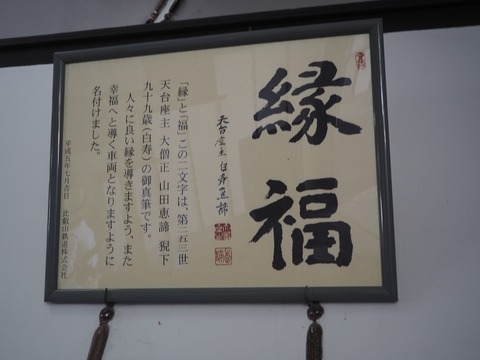 縁福
天台座主白寿恵諦
「縁」と「福」この二文字は、第二五三世
天台座主 大僧正 山田恵諦 猊下
九十九歳(白寿)の御真筆です。
人々に良い縁を導きますよう、また
幸福へと導く車両となりますように
名付けました。
平成五年七月吉日 比叡山鉄道株式会社